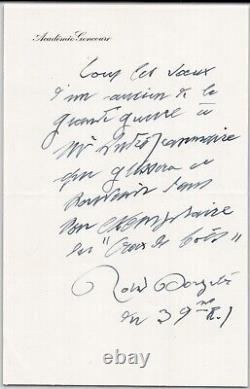 Académie Goncourt
Tous les vœux
d'un ancien de la
grande guerre à
Mr
qui glissera ce
souvenir dans
son exemplaire
des "Croix de bois"
Roland Dorgelès
du 39me R.I